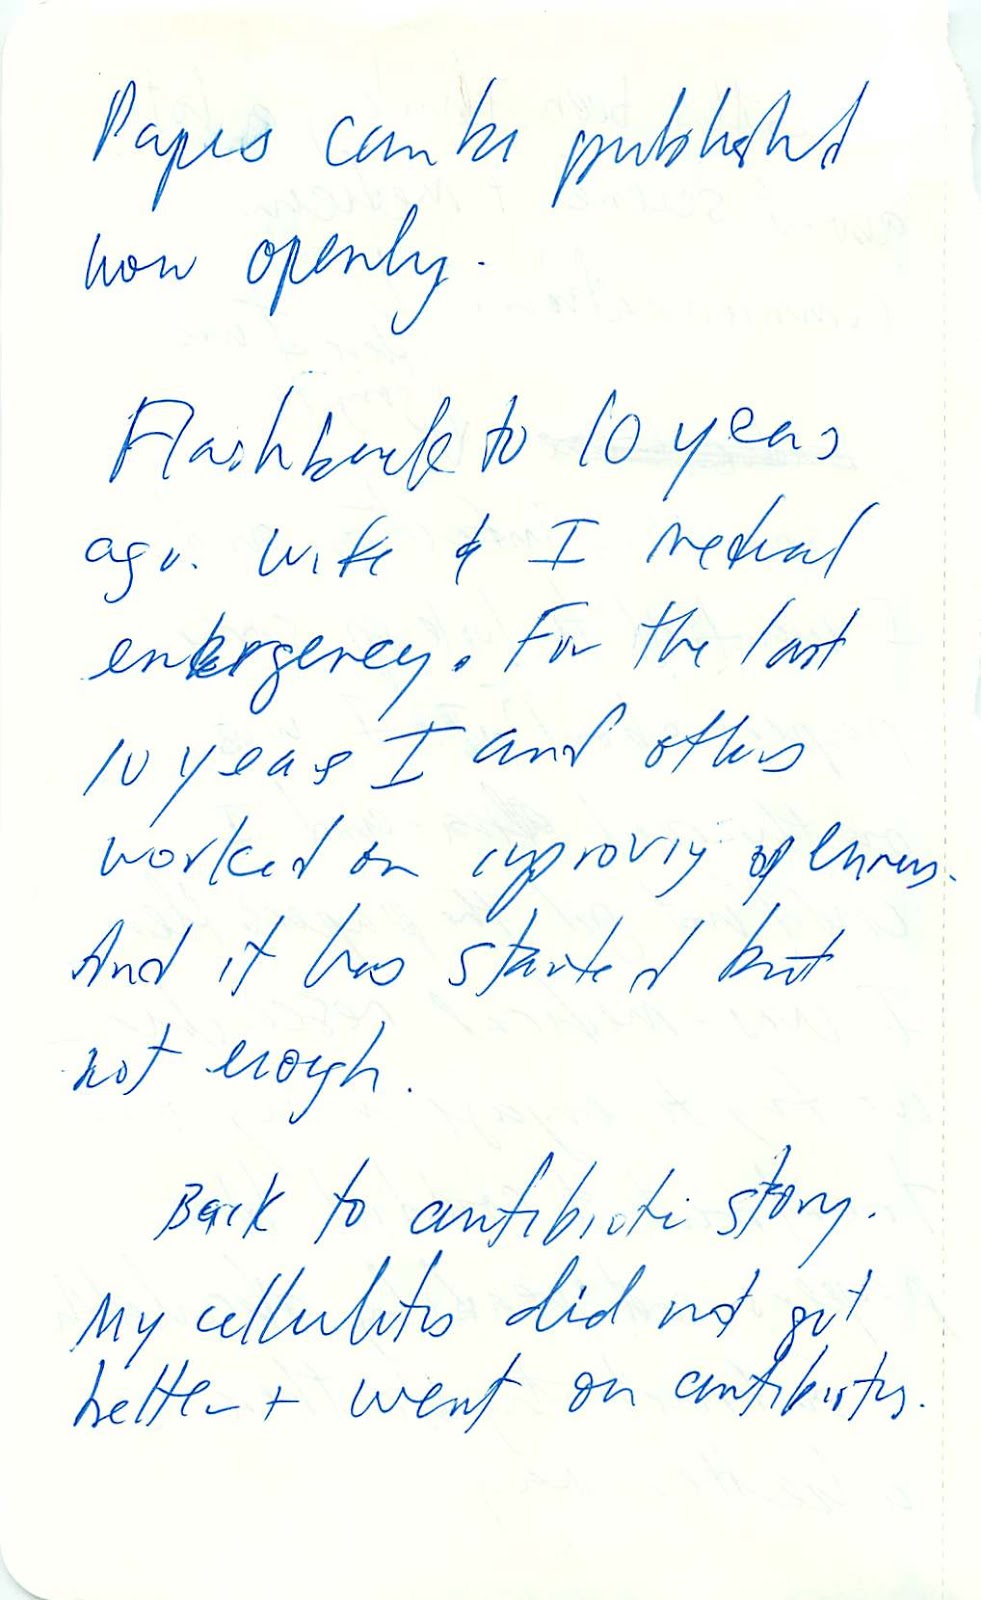 Papers can be published
now openly.
Flashback to 10 years
ago. Wife & I medical
emergency. For the last
10 years I and others
worked on improving openness.
And it has started but
not enough.
Back to antibiotic story.
My cellulitis did not get
better + went on antibiotics.